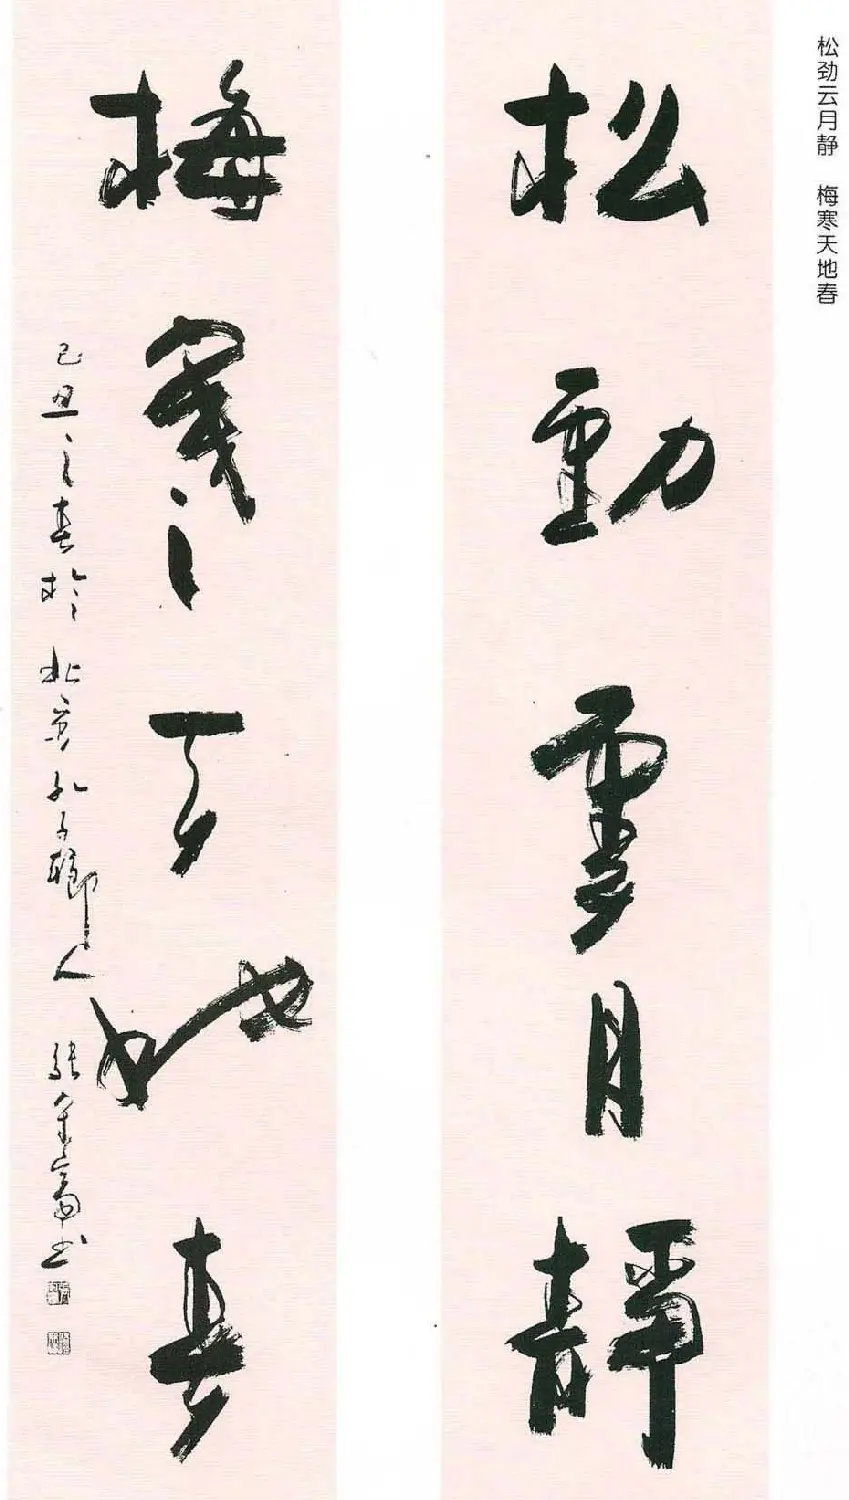 松劲云月静 梅寒天地春
松動雲月靜
梅寒天地春
己丑之春於北京孔子鄉人 張富書